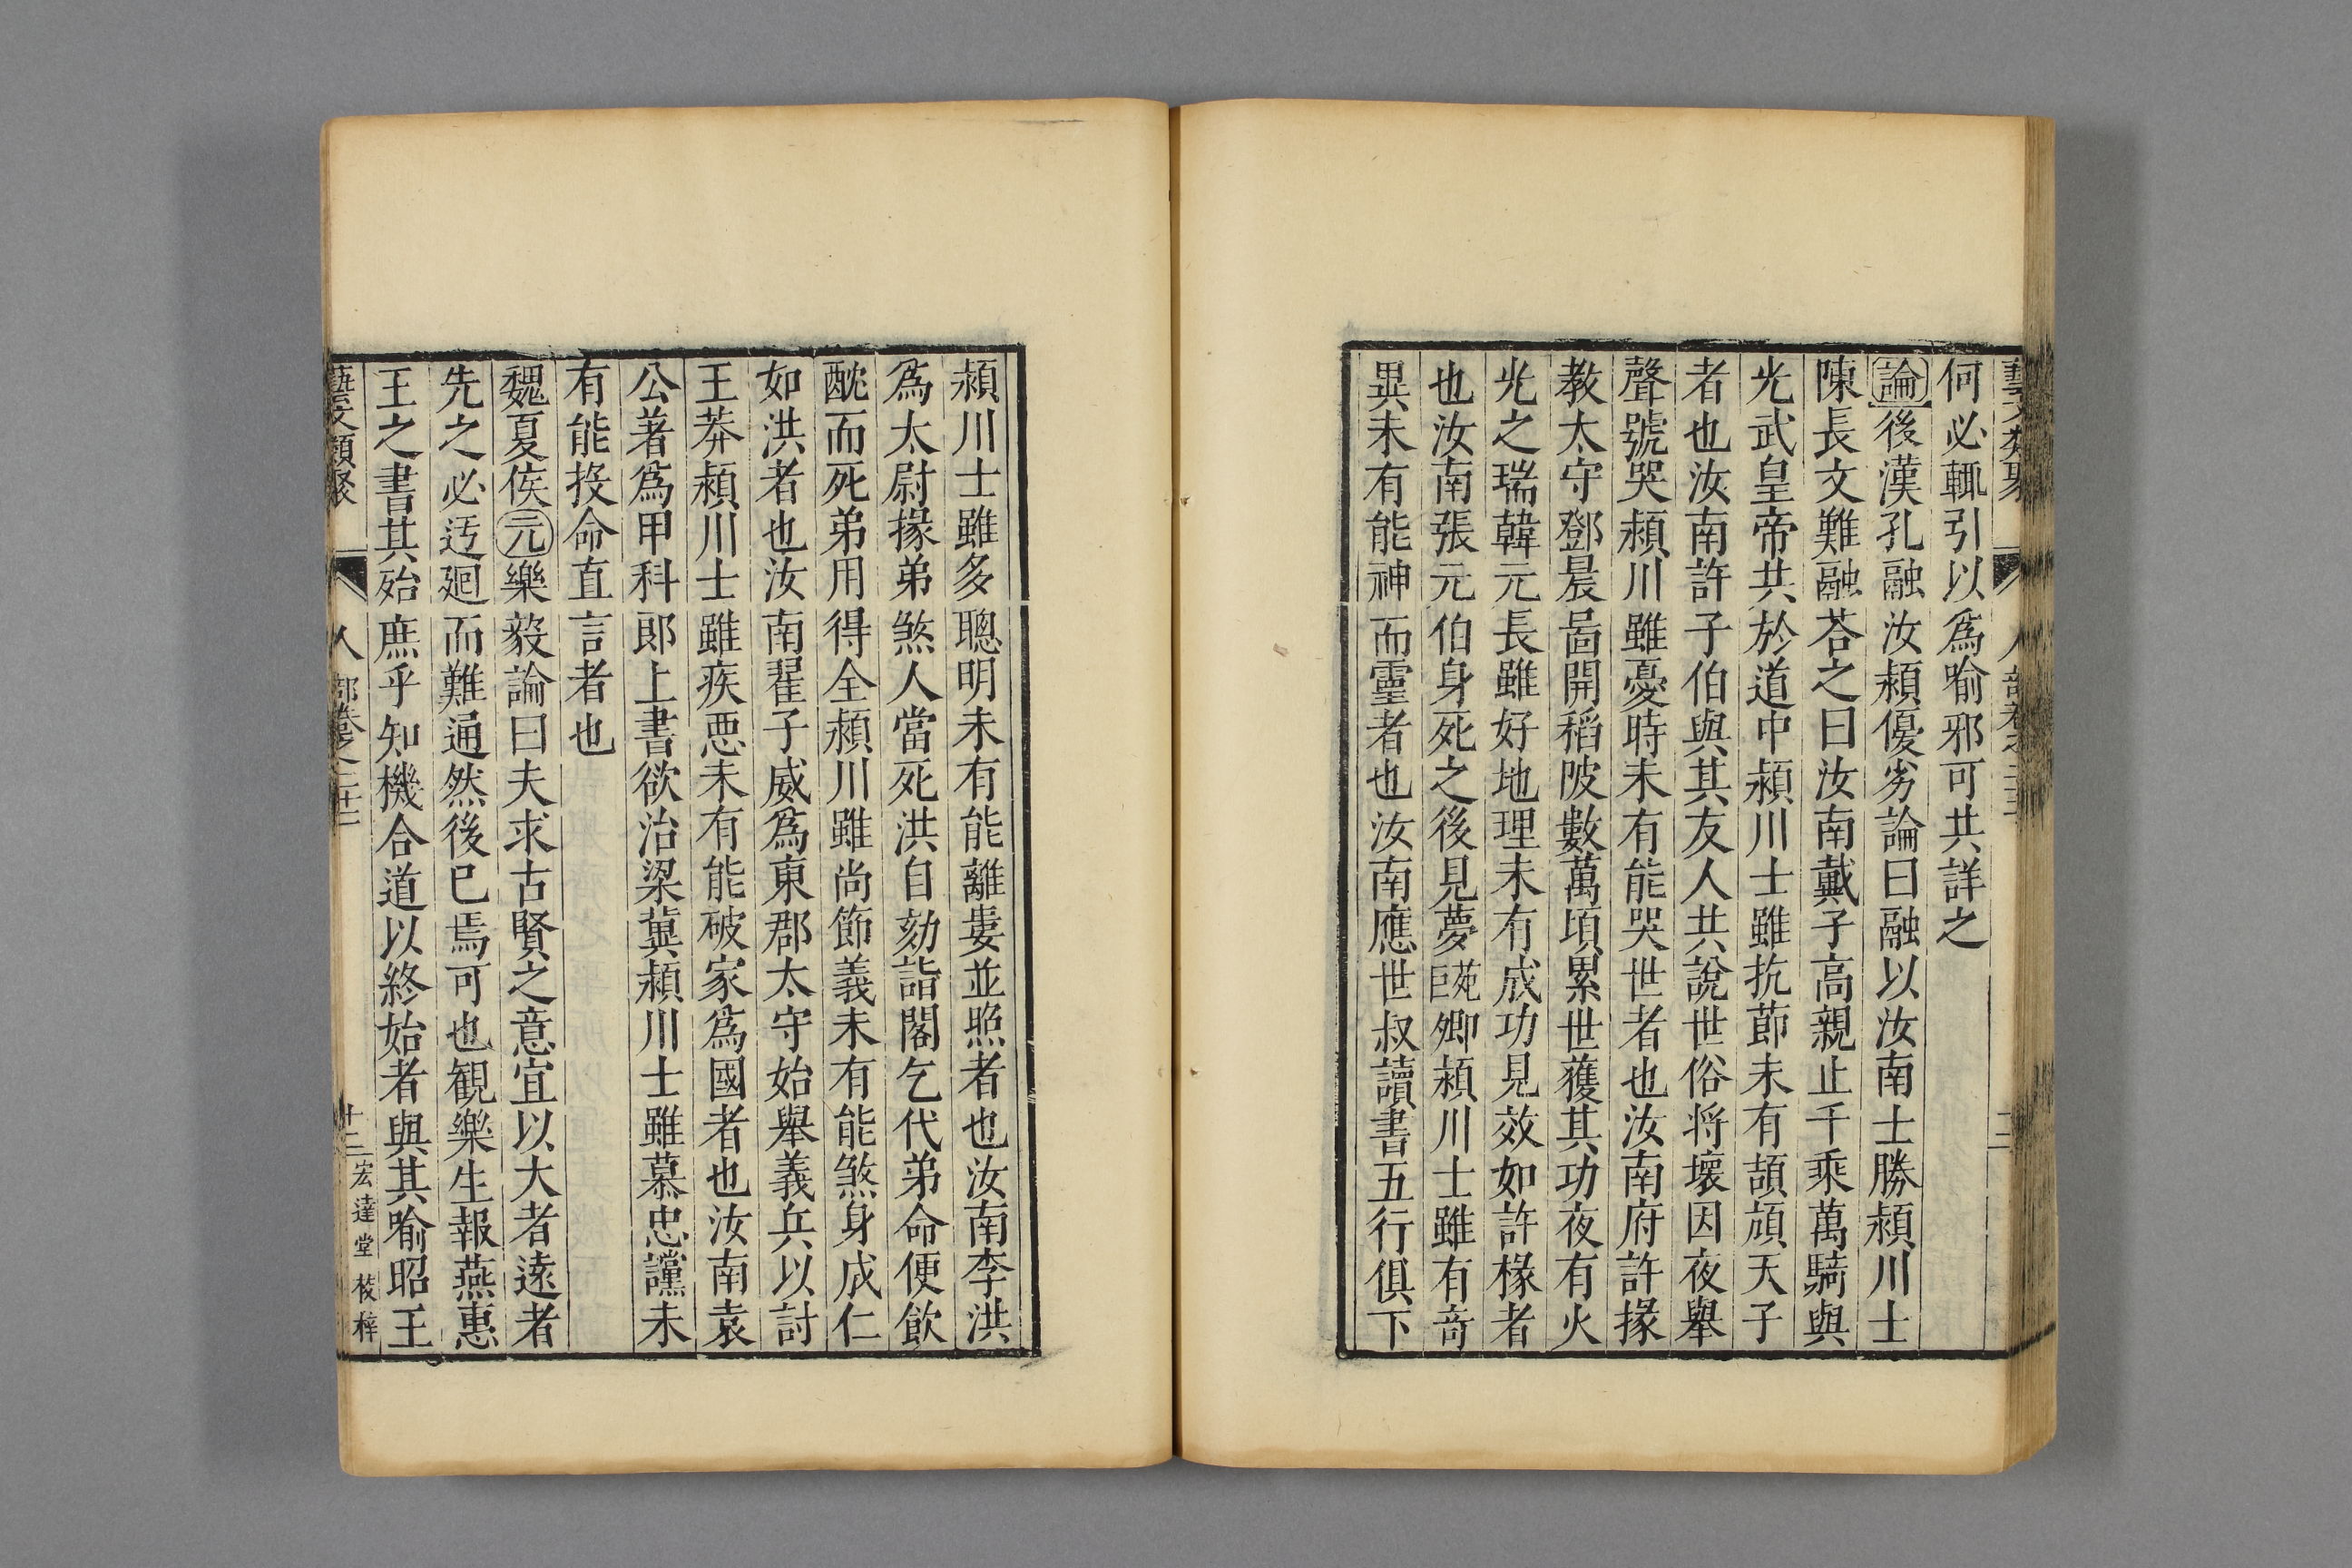 何必輒引以爲喻邪可共詳之
論後漢孔融汝潁優劣論曰融以汝南士勝潁川士
陳長文難融荅之曰汝南戴子高親止千乘萬騎與
光武皇帝共於道中潁川士雖抗節未有頡頏天子
者也汝南許子伯與其友人共說世俗将壞因夜舉
聲號哭潁川雖憂時未有能哭世者也汝南府許掾
教太守鄧晨啚開稻陂數萬頃累世獲其功夜有火
光之瑞韓元長雖好地理未有成功見效如許掾者
也汝南張元伯身死之後見夢范巨卿潁川士雖有奇
異未有能神而靈者也汝南應世叔讀書五行俱下
潁川士雖多聰明未有能離婁並照者也汝南李洪
爲太尉掾弟煞人當死洪自劾詣閣乞代弟命便飲
酖而死弟用得全潁川雖尚節義未有能煞身成仁
如洪者也汝南翟子威爲東郡太守始舉義兵以討
王莽潁川士雖疾惡未有能破家爲國者也汝南袁
公著爲甲科郎上書欲治梁冀潁川士雖慕忠讜未
有能投命直言者也
魏夏侯元樂毅論曰夫求古賢之意宜以大者遠者
先之必迃廻而難通然後已焉可也觀樂生報燕惠
王之書其殆庶乎知機合道以終始者與其喻昭王
藝文類聚 人部卷之二十二 十二 宏達堂校梓